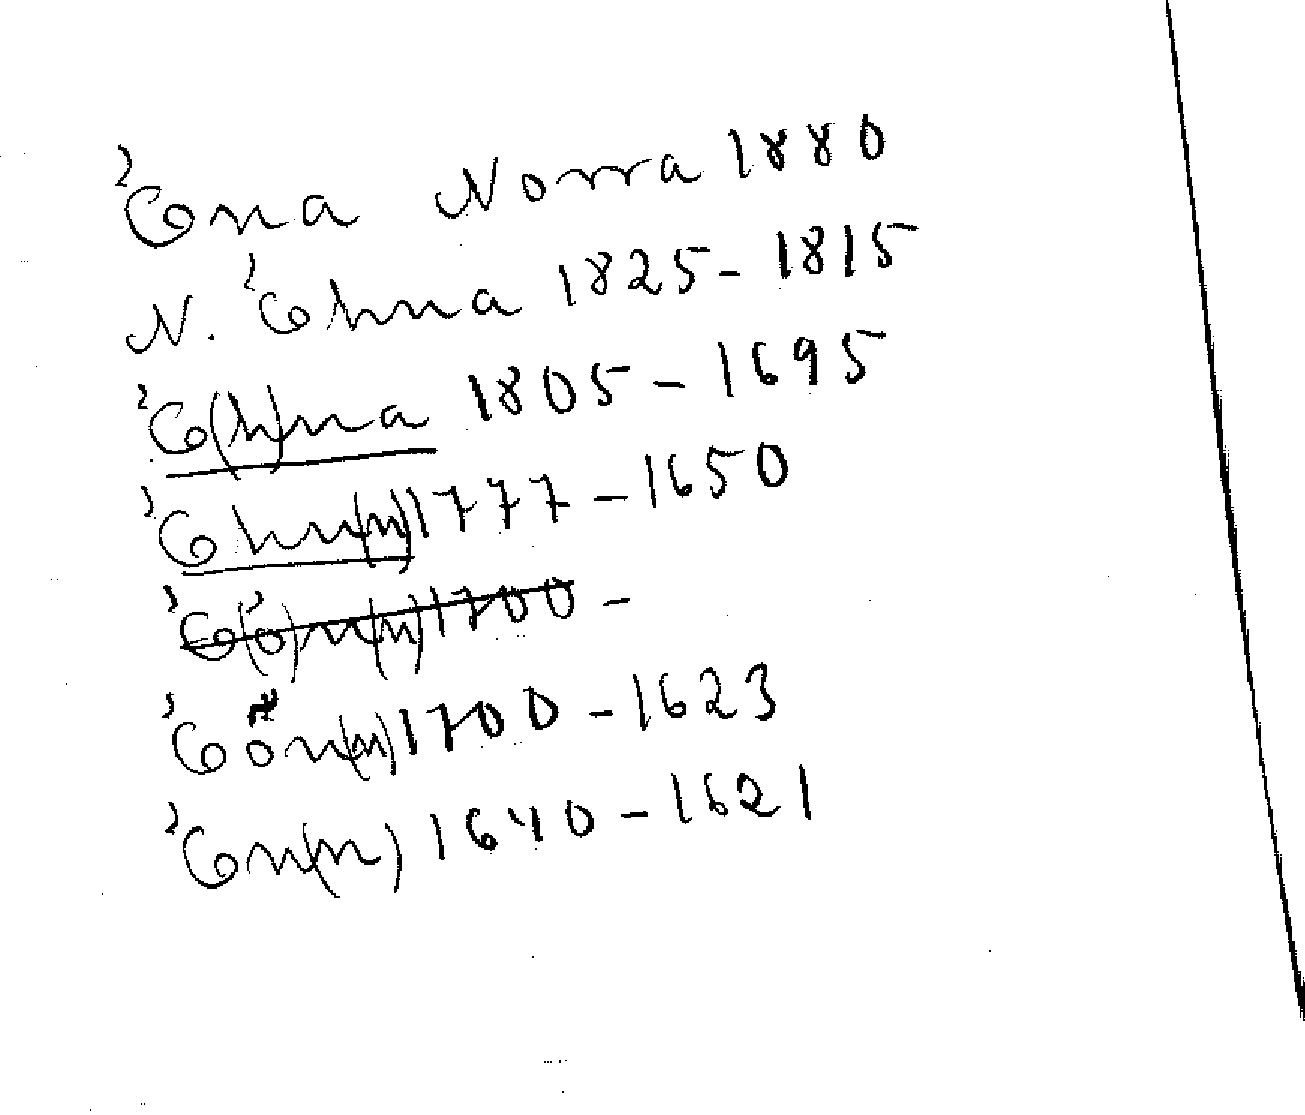 Öna Norra 1880
N. Öhna 1825-1815
Ö(h)na 1805-1695
Öhn(n) 1777-1650
Ö(ö)n(n) 1700-
Öön(n) 1700-1623
Ön(n) 1640-1621